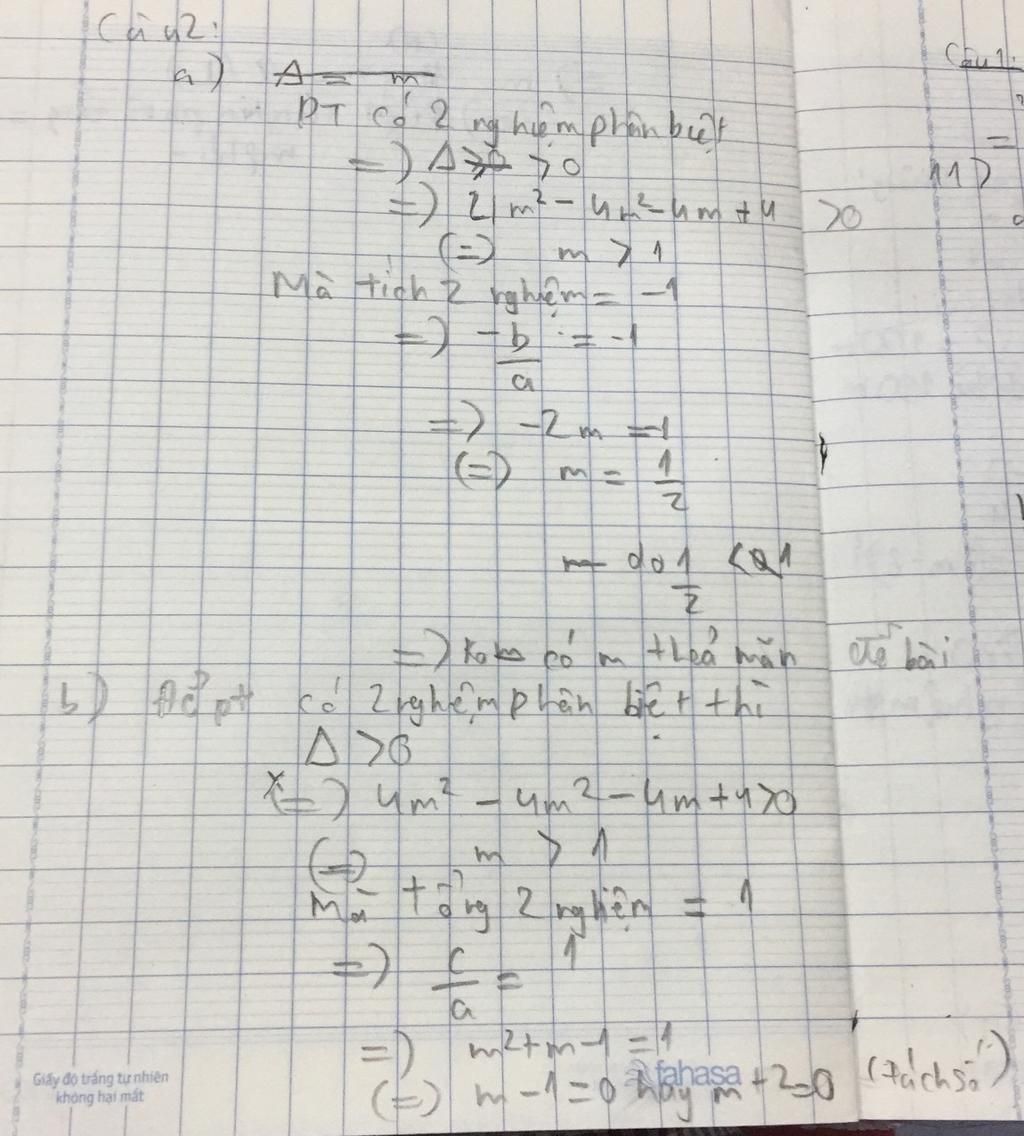 Câu 2:
a) Δ = m
PT có 2 nghiệm phân biệt
=) Δ ≥ 0 > 0
=) 4m² - 4m² - 4m + 4 > 0
(=) m > 1
Mà tích 2 nghiệm = -1
=) -b/a = -1
=) -2m = -1
(=) m = 1/2
do 1/2 < 1
=) Ko có m thoả mãn đề bài
b) Để pt có 2 nghiệm phân biệt thì
Δ > 0
(=) 4m² - 4m² - 4m + 4 > 0
(=) m > 1
Mà tổng 2 nghiệm = 1
=) c/a = 1
=) m² + m - 1 = 1
(=) m - 1 = 0 hay m + 2 = 0 (tách số)
Giấy độ trắng tự nhiên
không hại mắt
fahasa
Câu 1:
=
11)